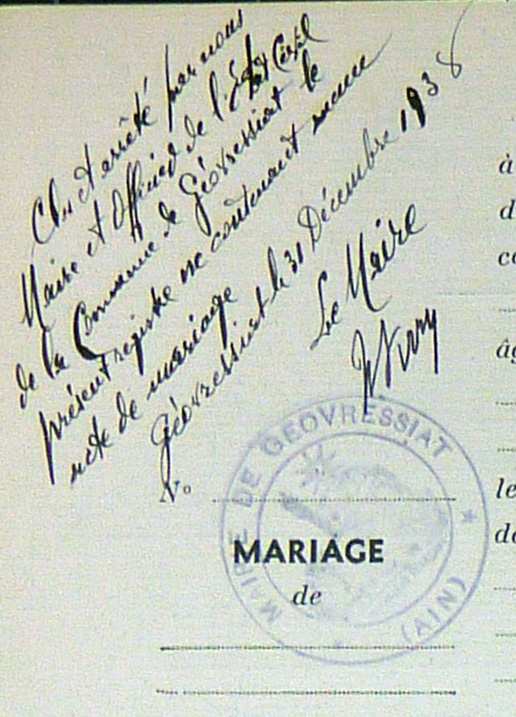 Clos et arrêté par nous
Maire et Officier de l'Etat Civil
de la Commune de Géovressiat le
présent registre ne contenant aucun
acte de mariage
Géovressiat le 31 Décembre 1938
Le Maire
MAIRIE DE GEOVRESSIAT
(AIN)
No
MARIAGE
de
à
d
co
âg
le
de